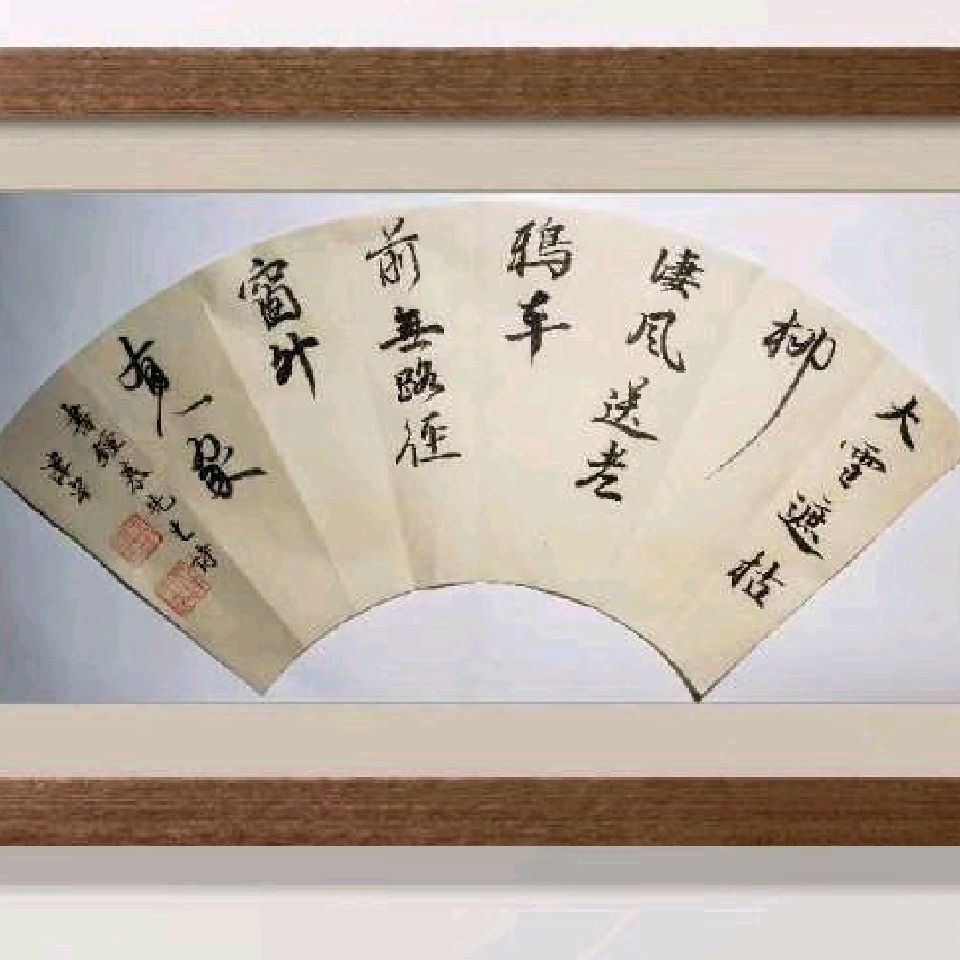 大雪遮枯
柳
淒风送老
鴉车
前無路徑
窗外
有一家